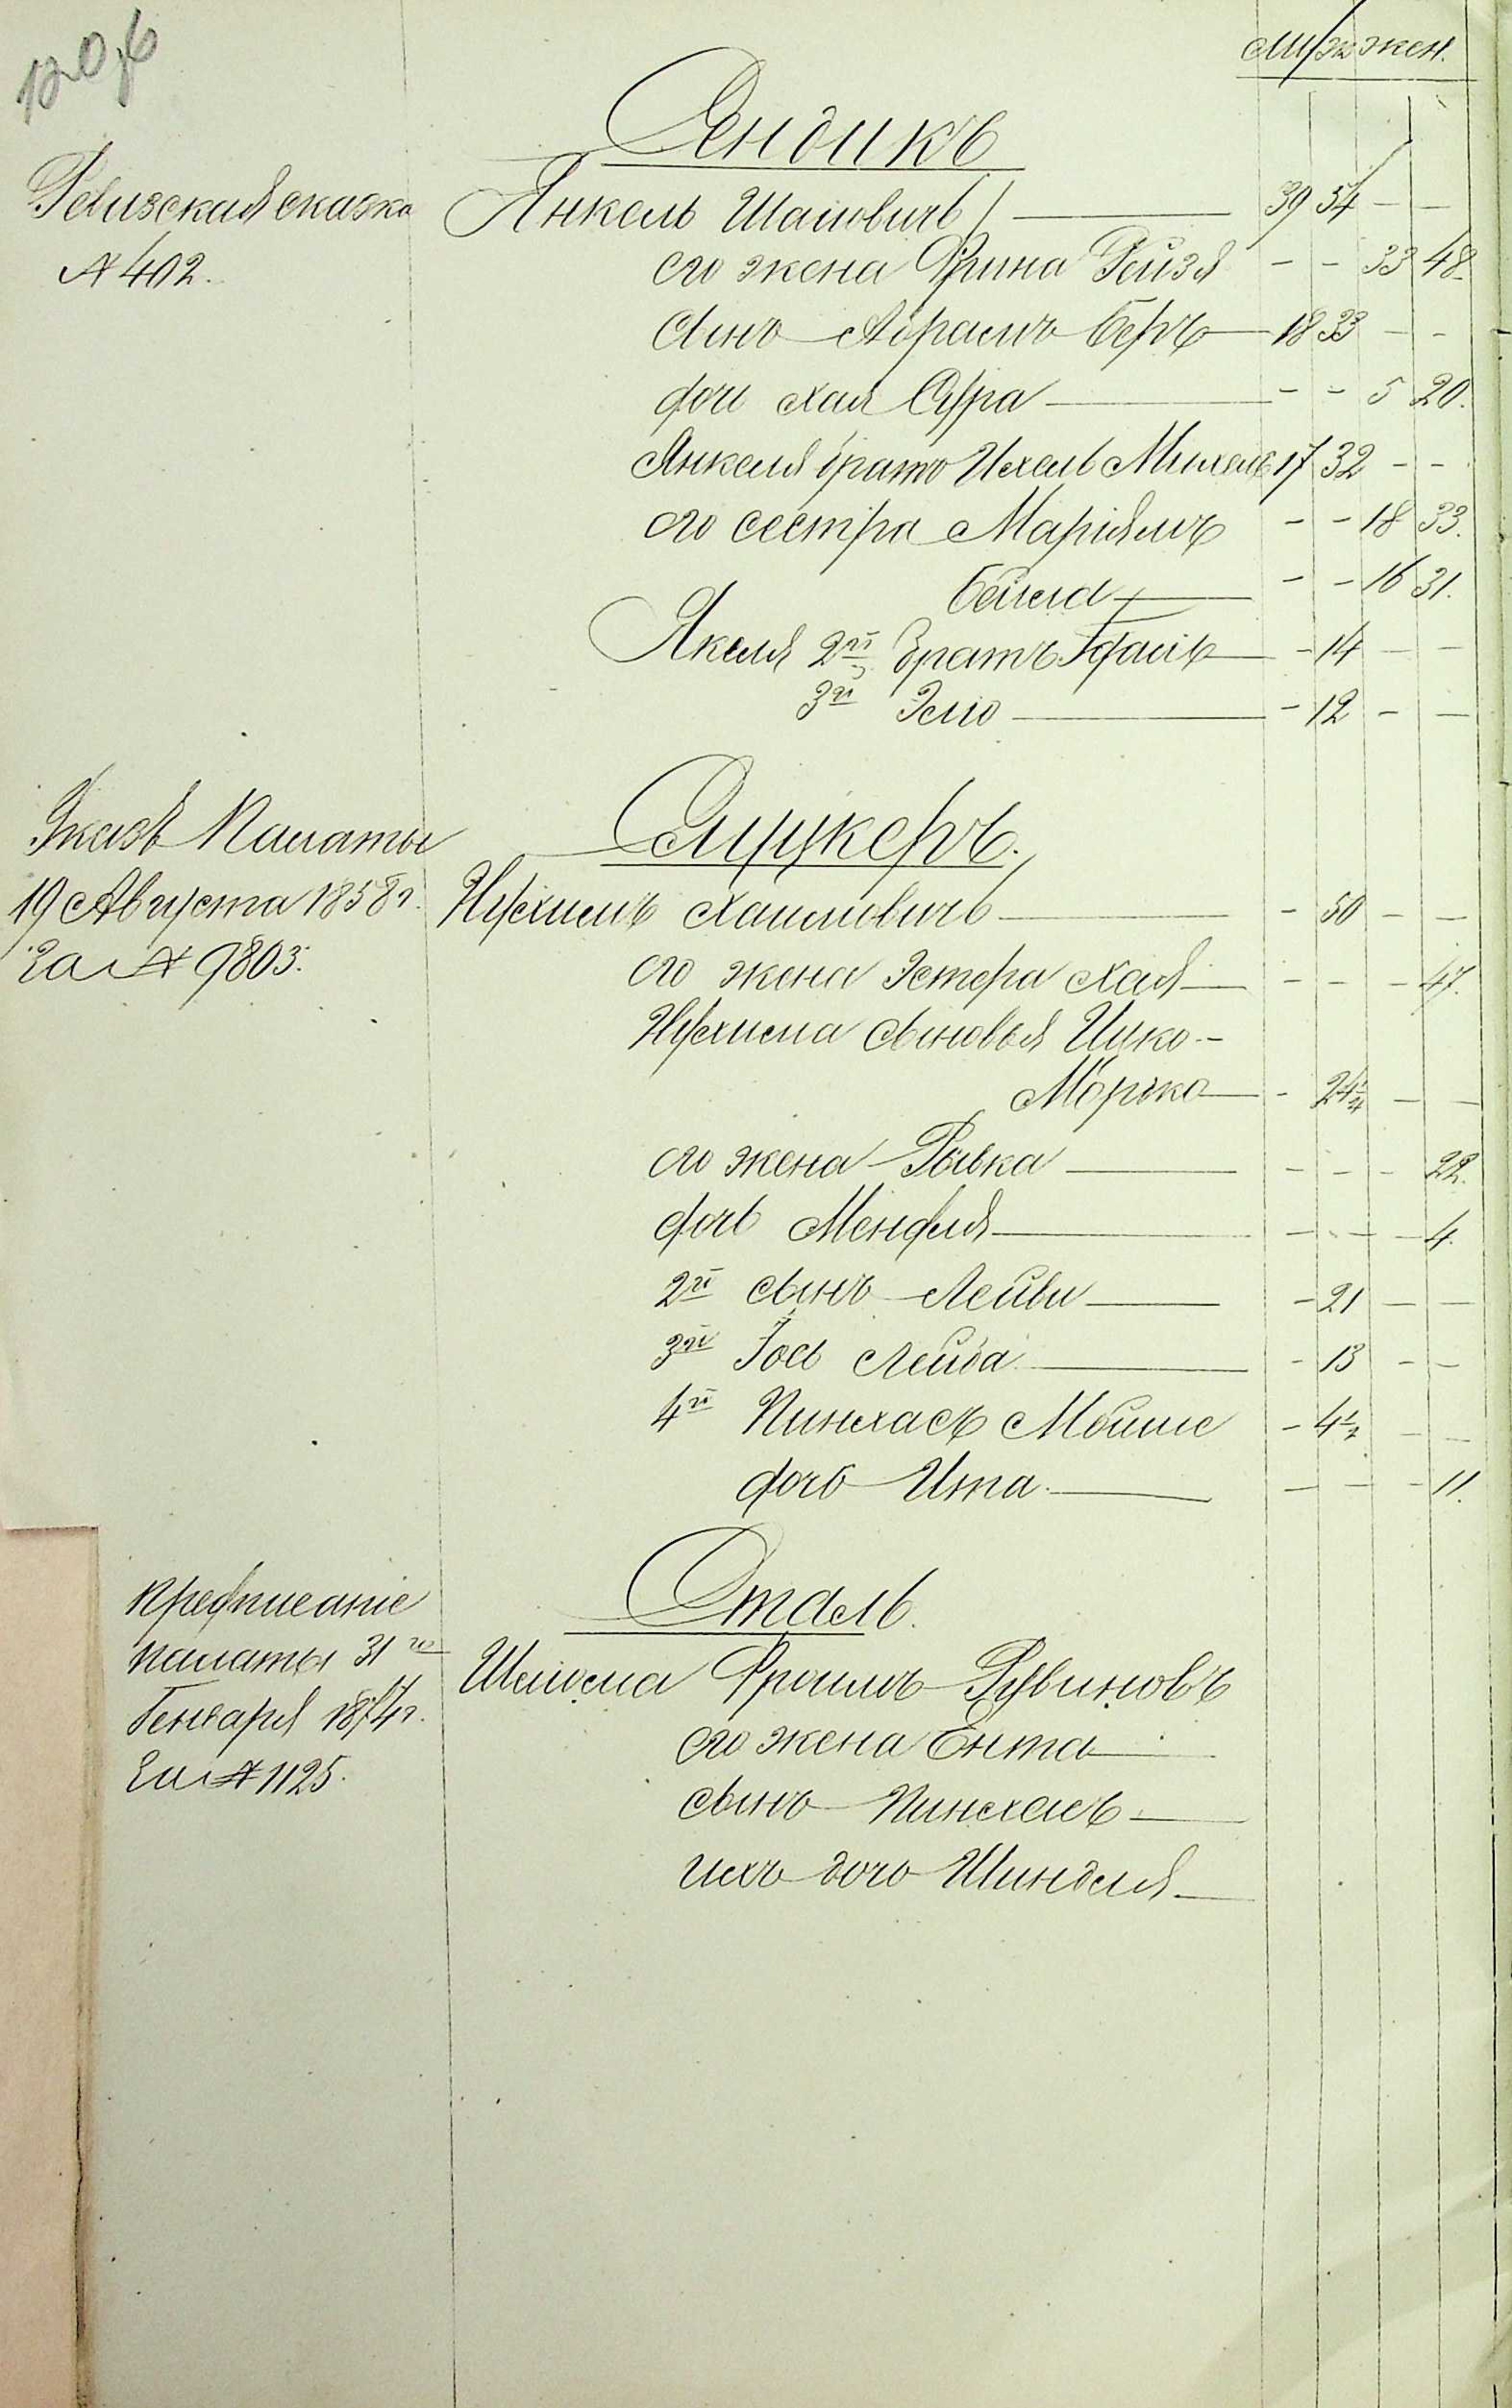 Муж жен.
Сендикъ
Ревизская сказка
№ 402.
Янкель Шаиовичъ 39 54 - -
его жена Фрина Рейзя - - 33 48
сынъ Абрамъ Беръ 18 33 - -
дочь Хая Сура - - 5 20.
Янкеля братъ Ихель Михель 17 32 - -
его сестра Маріямъ - - 18 33.
Бейла - - 16 31.
Якеля 2й братъ - 14 - -
3й Эліо - 12 - -
Слуцкеръ.
Указъ Палаты
19 Августа 1858 г.
За № 9803.
Нухимъ Хаимовичъ - 50 - -
его жена Эстера Хая - - - 47.
Нухима сыновья Ицко-
Мошко - 24 - -
его жена Рывка - - - 22.
дочь Мендля - - - 4.
2й сынъ Лейви - 21 - -
3й Іось Лейба - 13 - -
4й Пинхасъ Мойше - 4½ - -
дочь Ита - - - 11.
Сталь.
Предписаніе
палаты 31го
Генваря 1874 г.
За № 1125.
Шліома Фроимъ Рувиновъ
его жена Ента
сынъ Пинхасъ
ихъ дочь Шиндля